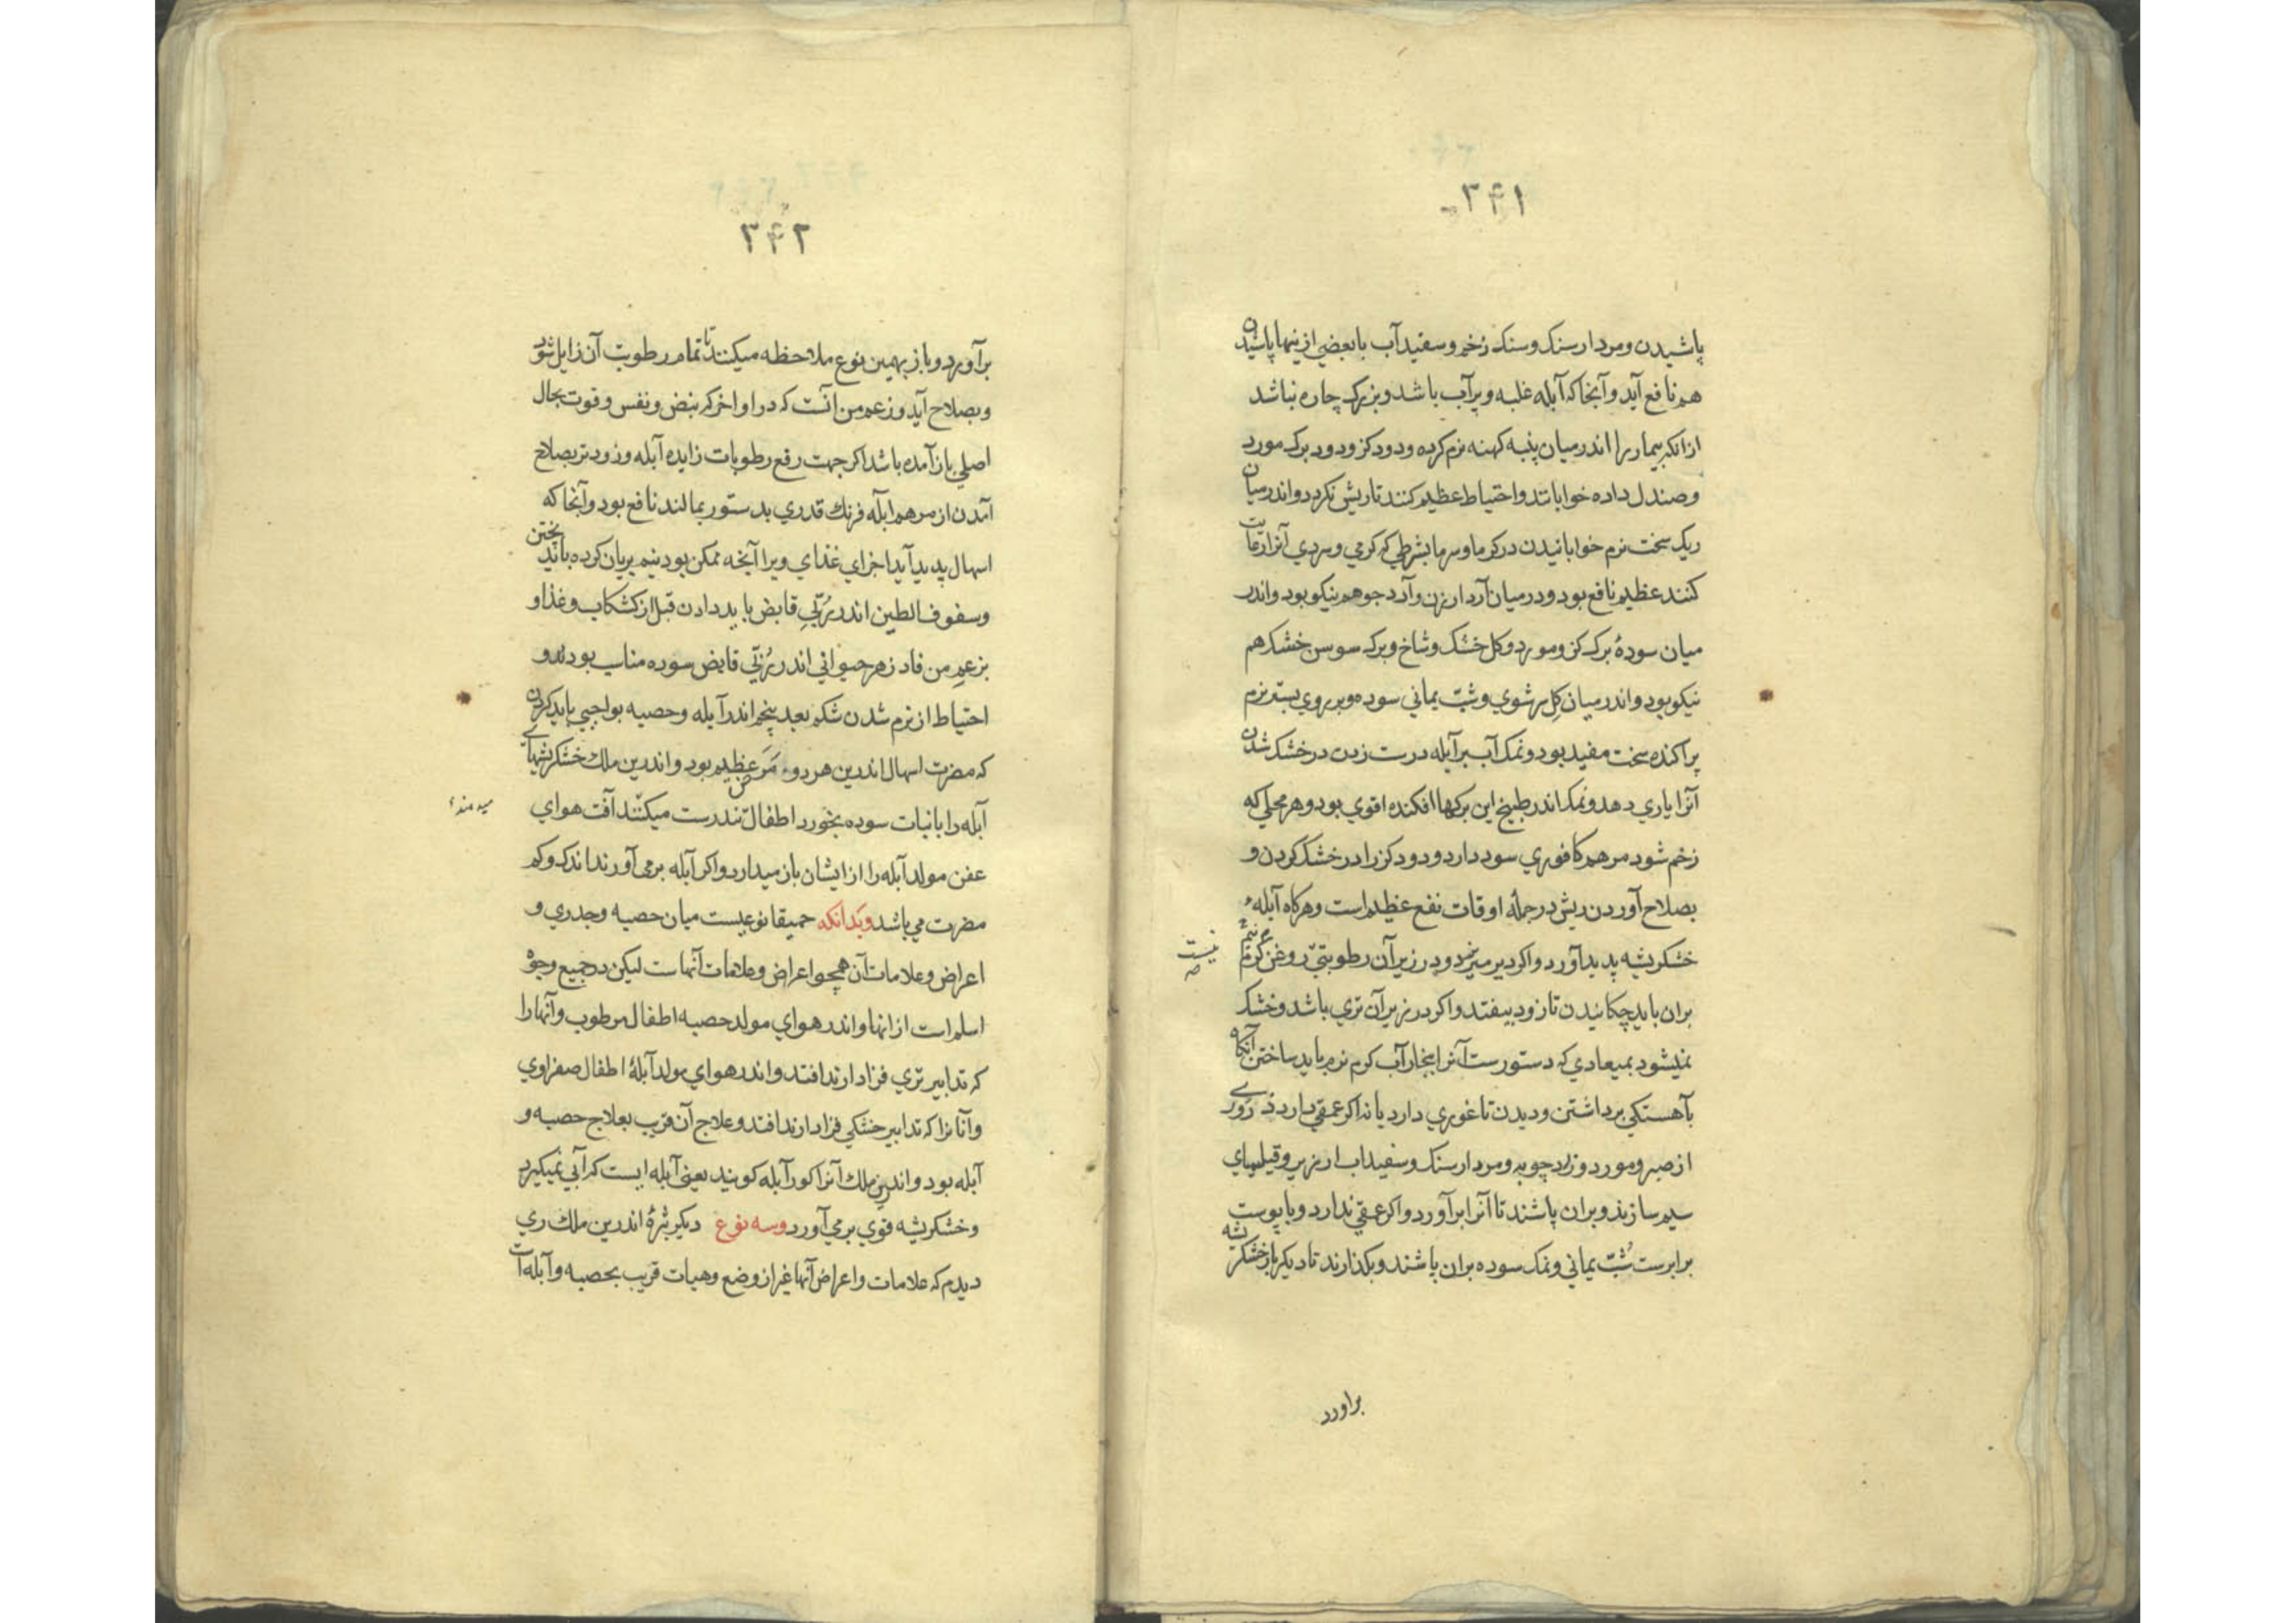 ۳۴۱
پاشیدن و مردارسنک و سنک زخم و سفیدآب با بعضی ازینها پاشیدن
هم نافع آید و آنجا که آبله غلبه و پرآب باشد و بزرک چاره نباشد
ازانکه بیمار را اندر میان پنبه کهنه نرم کرده و دود کز و دود برک مورد
و صندل داده خوابانند و احتیاط عظیم کنند تا ریش نکردد و اندر میان
ریک سخت نرم خوابانیدن در کرما و سرما بشرطی که کرمی و سردی آنرا
کنند عظیم نافع بود و در میان آرد ارزن و آرد جو هم نیکو بود و اندر
میان سودهٔ برک کز و مورد و کل خشک و شاخ و برک سوسن خشک هم
نیکو بود و اندر میان کِل سرشوی و شبّ یمانی سوده و بر روی بستر نرم
پراکنده سخت مفید بود و نمک آب بر آبله درست زدن در خشک شدن
آنرا یاری دهد و نمک اندر طبیخ این برکها افکنده اقوی بود و هر محلی که
زخم شود مرهم کافوری سود دارد و دود کز را در خشک کردن و
بصلاح آوردن ریش در جملهٔ اوقات نفع عظیم است و هرکاه آبلهٔ
خشکریشه پدید آورد و اکر دیر میریزد و در زیر آن رطوبتی نیست روغن کرم نیم
بران باید چکانیدن تا زود بیفتد و اکر در زیر آن تری باشد و خشک
نمیشود بمیعادی که دستورست آنرا ببخار آب کرم نرم باید ساختن آنکاه
بآهستکی برداشتن و دیدن تا غوری دارد یا نه اکر عمقی دارد ذروری
از صبر و مورد و زردچوبه و مردارسنک و سفیداب ارزیز و قیلمیای
سیم سازند و بران پاشند تا آنرا برآورد و اکر عمقی ندارد و با پوست
برابرست شُبّ یمانی و نمک سوده بران پاشند و بکذارند تا دیکر باز خشکریشه
براورد
۳۴۲
برآورد و باز بهمین نوع ملاحظه میکنند تا تمام رطوبت آن زایل شود
و بصلاح آید و زعم من آنست که در اواخر که نبض و نفس و قوت بحال
اصلی باز آمده باشد اکر جهت رفع رطوبات زایده آبله و زودتر بصلاح
آمدن از مرهم آبله فرنک قدری بدستور بمالند نافع بود و آنجا که
اسهال پدید آید اجزای غذای ویرا آنچه ممکن بود نیم بریان کرده باید پختن
و سفوف الطین اندر رُبّی قابض باید دادن قبل از کشکاب و غذا و
بزعمِ من فادزهر حیوانی اندر رُبّی قابض سوده مناسب بود و
احتیاط از نرم شدن شکم بعد پنجم اندر آبله و حصبه بواجبی باید کردن
که مضرت اسهال اندرین هر دو مرض عظیم بود و اندرین ملک خشکریشهای
آبله را با نبات سوده بخورد اطفال تندرست میکنند آفت هوای
میدهند
عفن مولد آبله را از ایشان باز میدارد و اکر آبله برمی آورند اندک و کم
مضرت می باشد و بدانکه حمیقا نوعیست میان حصبه و جدری و
اعراض و علامات آن همچو اعراض و علامات آنهاست لیکن در جمیع وجوه
اسلم است از انها و اندر هوای مولد حصبه اطفال مرطوب و آنها را
که تدابیر تری فزا دارند افتد و اندر هوای مولد آبلهٔ اطفال صفراوی
و آنانرا که تدابیر خشکی فزا دارند افتد و علاج آن قریب بعلاج حصبه و
آبله بود و اندرین ملک آنرا کورآبله کویند یعنی آبله ایست که آبی نمیکیرد
و خشکریشه قوی برمی آورد و سه نوع دیکر بثرهٔ اندرین ملک ری
دیدم که علامات و اعراض آنها غیر از وضع و هیات قریب بحصبه و آبله است